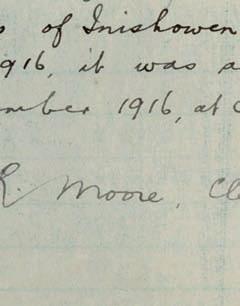 of Inishowen
916, it was a
mber 1916, at
R. Moore, Cl